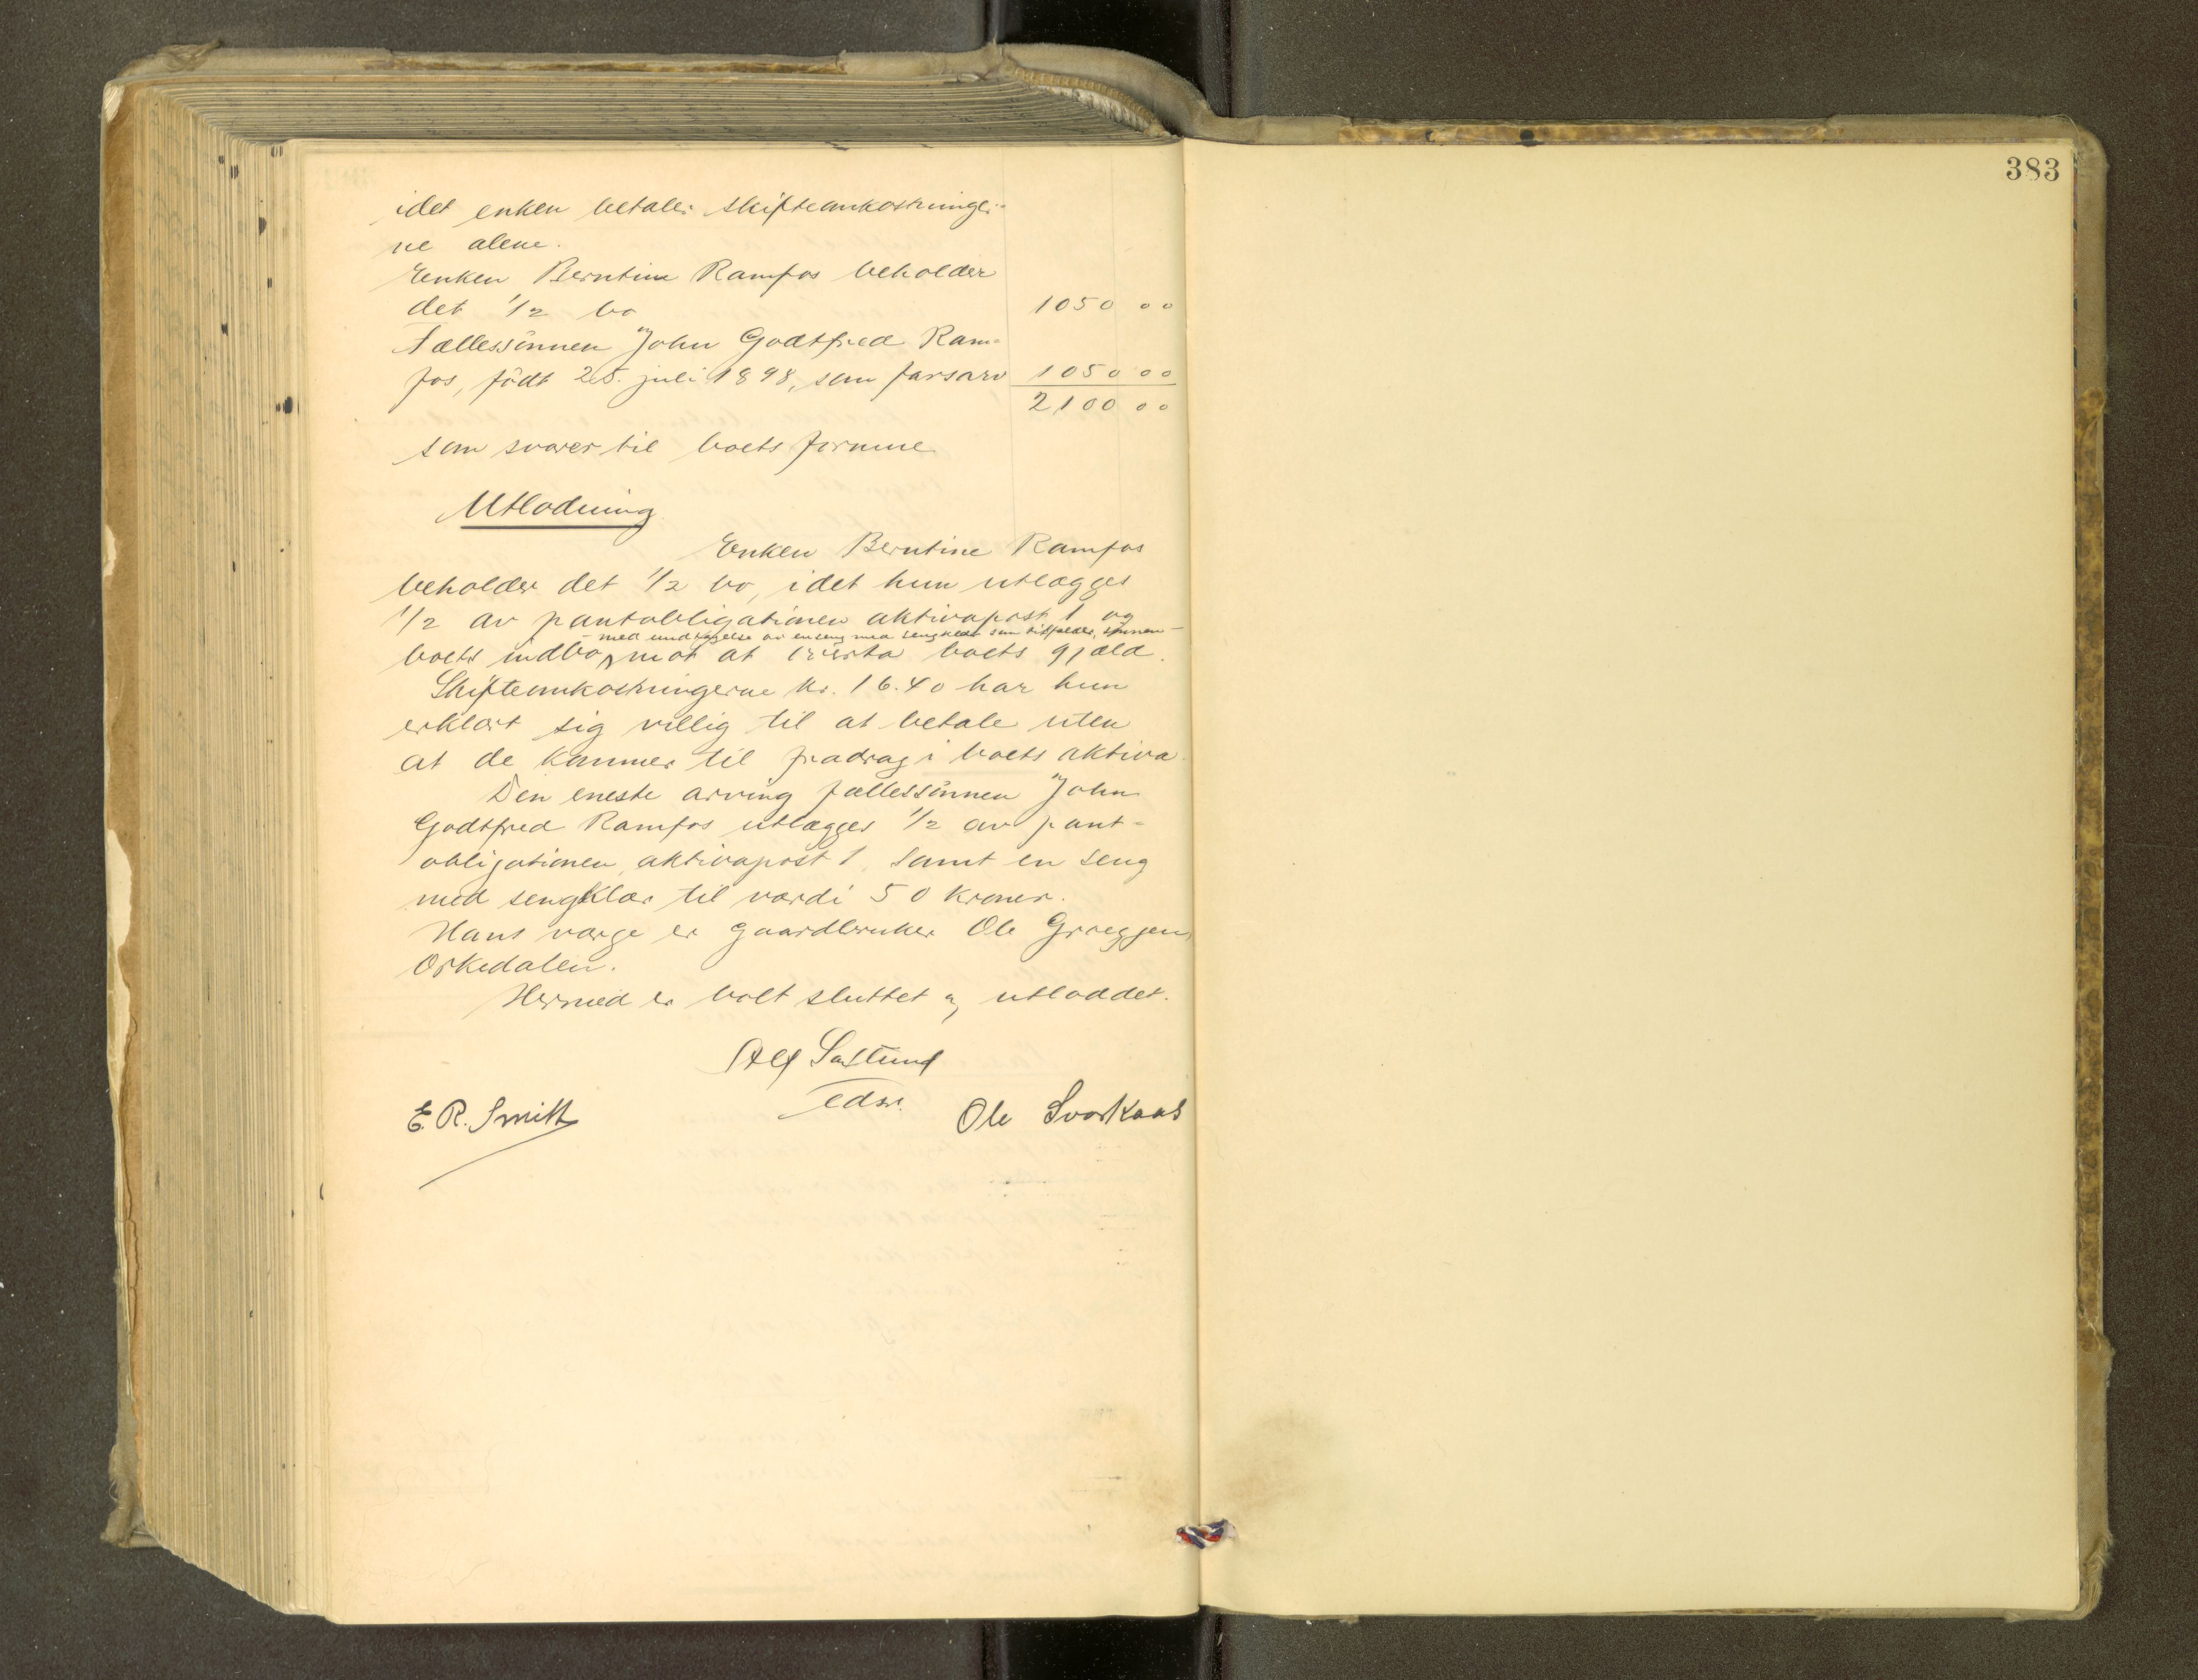 383
idet enken betaler skifteomkostninger-
ne alene.
Enken Berntine Ramfos beholder
det 1/2 bo 1050 00
Fællessönnen John Godtfred Ram-
fos, födt 25. juli 1898, som farsarv 1050 00
2100 00
som svarer til boets formue
Utlodning
Enken Berntine Ramfos
beholder det 1/2 bo, idet hun utlægges
1/2 av pantobligationen aktivapost 1 og
- med undtagelse av en seng med sengklær som tilfalder sönnen -
boets indbo, mot at boets gjæld.
Skifteomkostningerne kr. 16.40 har hun
erklært sig villig til at betale uten
at de kommer til fradrag i boets aktiva.
Den eneste arving fællessönnen John
Godtfred Ramfos utlægges 1/2 av pant-
obligationen, aktivapost 1, samt en seng
med sengklær til værdi 50 kroner.
Hans værge er gaardbruker Ole
Orkedalen.
Hermed er boet sluttet og utloddet.
Alf
edsv.
E. R. Smith Ole Svorkaas